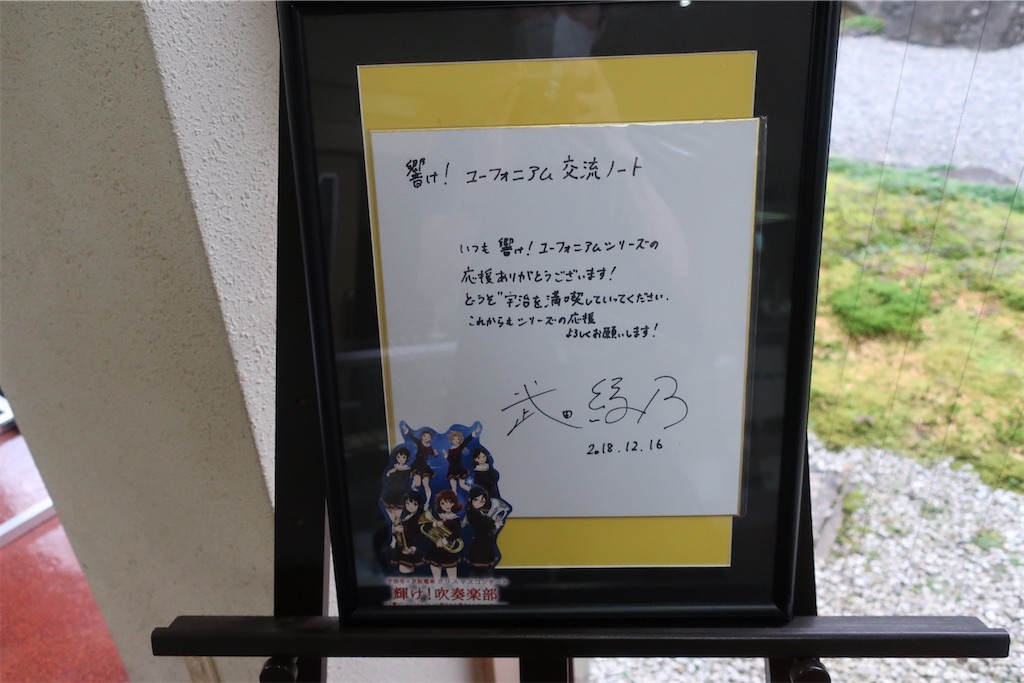 響け！ユーフォニアム 交流ノート
いつも 響け！ユーフォニアムシリーズの
応援ありがとうございます！
どうぞ宇治を満喫していってください。
これからもシリーズの応援
よろしくお願いします！
武田綾乃
2018.12.16
クリスマスコンサート
輝け！吹奏楽部